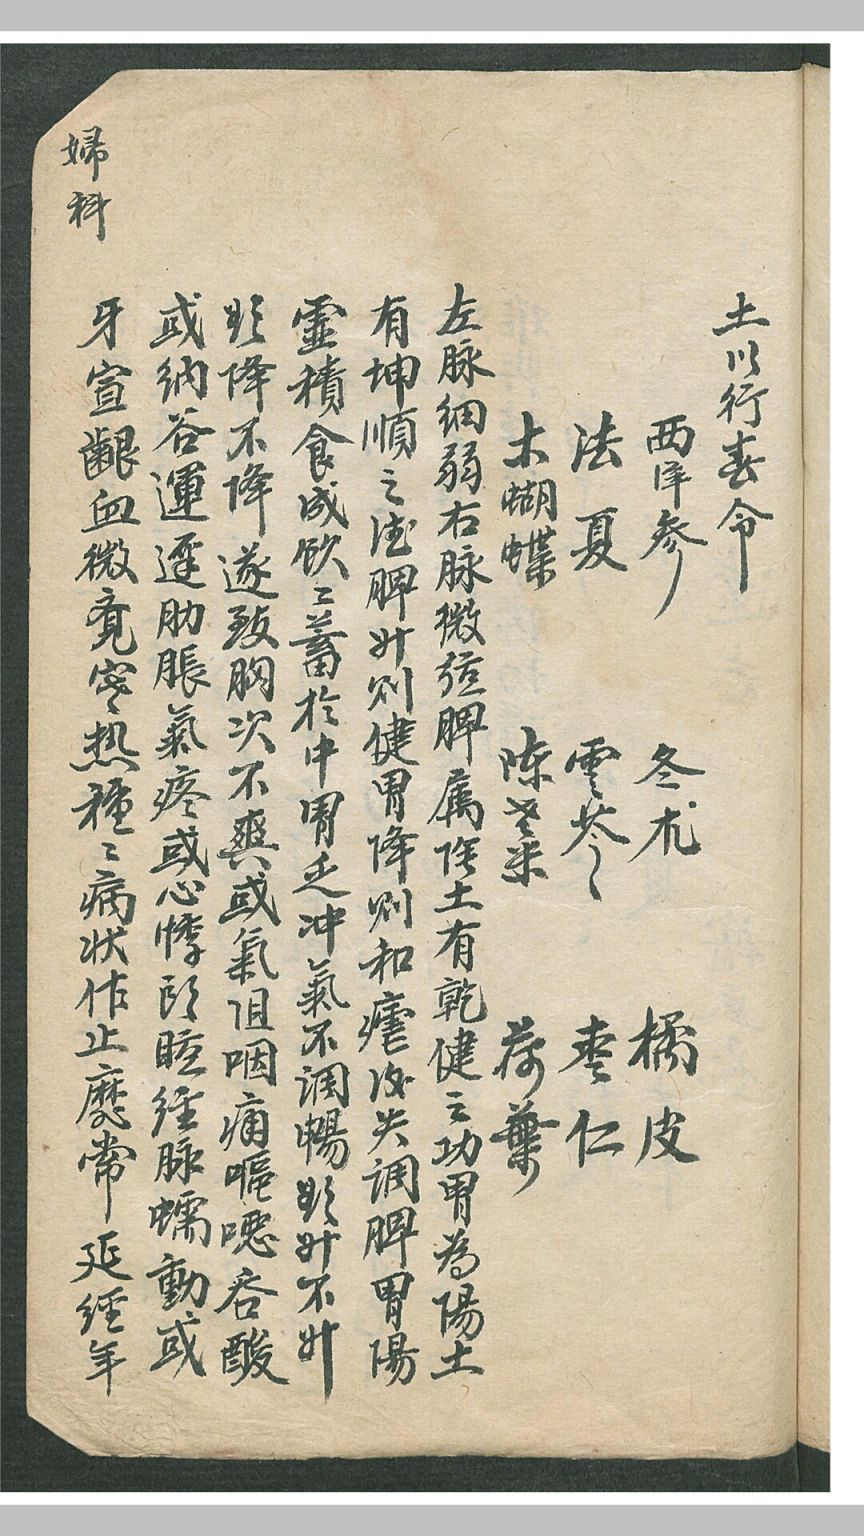 土以行春令
西洋参 冬朮 橘皮
法夏 雲苓 枣仁
木蝴蝶 陈老米 荷葉
左脉細弱右脉微弦脾属陰土有乾健之功胃為陽土
有坤順之德脾升則健胃降則和瘧後失調脾胃陽
靈積食成飲〻蓄於中胃乏冲氣不調暢欲升不升
欲降不降遂致胸次不爽或氣阻咽痛嘔噁吞酸
或納谷運遲肋脹氣疼或心悸頭眩經脉蠕動或
牙宣齦血微覺寒热種〻病状作止靡常延經年
婦科